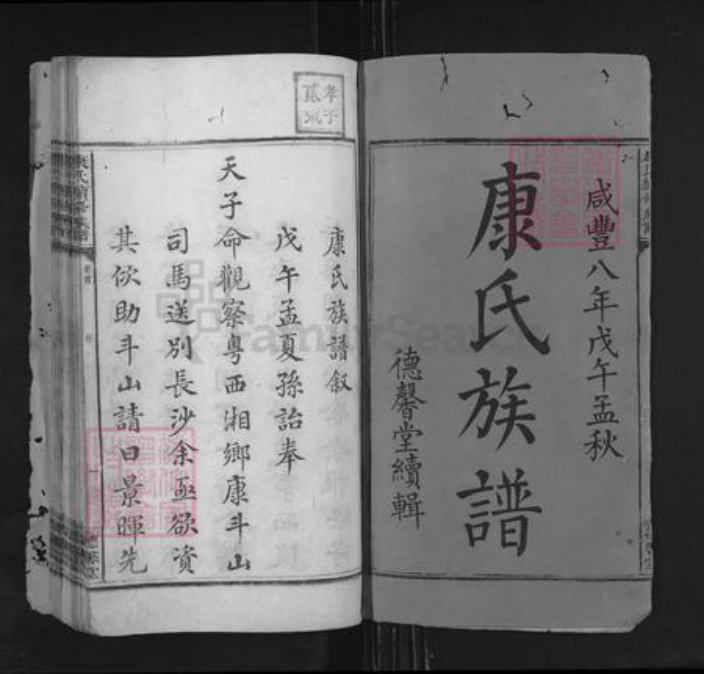 咸豐八年戊午孟秋
康氏族譜
德馨堂續輯
康氏族譜叙
戊午孟夏孫詒奉
天子命觀察粵西湘鄉康斗山
司馬送別長沙余亟欲資
其佽助斗山請曰景暉先
FamilySearch